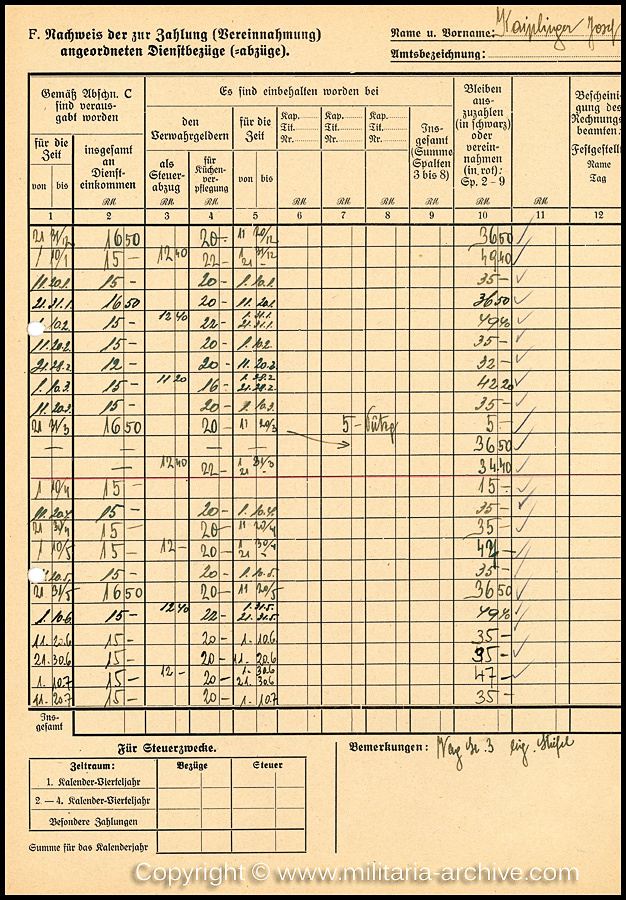 F. Nachweis der zur Zahlung (Vereinnahmung)
angeordneten Dienstbezüge (=abzüge).
Name u. Vorname: Kaiplinger Josef
Amtsbezeichnung:
Gemäß Abschn. C
sind veraus-
gabt worden
für die
Zeit
von bis
insgesamt
an
Dienst-
einkommen
RM
Es sind einbehalten worden bei
den
Verwahrgeldern
als
Steuer-
abzug
RM
für
Küchen-
ver-
pflegung
RM
für die
Zeit
von bis
Kap.
Tit.
Nr.
RM
Kap.
Tit.
Nr.
RM
Kap.
Tit.
Nr.
RM
Ins-
gesamt
(Summe
Spalten
3 bis 8)
RM
Bleiben
aus-
zuzahlen
(in schwarz)
oder
verein-
nahmen
(in rot):
Sp. 2 – 9
RM
RM
Bescheini-
gung des
Rechnungs-
beamten:
Festgestellt
Name
Tag
1 2 3 4 5 6 7 8 9 10 11 12
21 31/12 16 50 20 - 11 20/12 36 50
1 10/1 15 - 12 40 22 - 1. 31/12 21 - 49 40
11. 20.1. 15 - 20 - 1. 10.1. 35 -
21. 31.1. 16 50 20 - 11. 20.1. 36 50
1. 10.2. 15 - 12 40 22 - 1. 31.1. 21. 31.1. 49 40
11. 20.2. 15 - 20 - 1. 10.2. 35 -
21. 28.2. 12 - 20 - 11. 20.2. 32 -
1. 10.3. 15 - 11 20 16 - 1. 28.2. 21. 28.2. 42 20
11. 20.3. 15 - 20 - 1. 10.3. 35 -
21 31/3 16 50 20 - 11 20/3 5 - 5 -
— — — — 36 50
— 12 40 22 - 1 31/3 21 - 34 40
1 10/4 15 - 15 -
11. 20.4. 15 - 20 - 1. 10.4. 35 -
21 30/4 15 - 20 - 11 20/4 35 -
1 10/5 15 - 12 - 20 - 1 30/4 21 - 47 -
11. 20.5. 15 - 20 - 1. 10.5. 35 -
21 31/5 16 50 20 - 11 20/5 36 50
1. 10.6. 15 - 12 40 22 - 1. 31.5. 21. 31.5. 49 40
11. 20.6 15 - 20 - 1. 10.6 35 -
21. 30.6 15 - 20 - 11. 20.6 35 -
1. 10.7 15 - 12 - 20 - 1. 30.6 21. 30.6 47 -
11. 20.7 15 - 20 - 1. 10.7 35 -
Ins-
gesamt
Für Steuerzwecke.
Zeitraum: Bezüge Steuer
1. Kalender-Vierteljahr
2. — 4. Kalender-Vierteljahr
Besondere Zahlungen
Summe für das Kalenderjahr
Bemerkungen: 3 eig. Stiefel
Copyright © www.militaria-archive.com